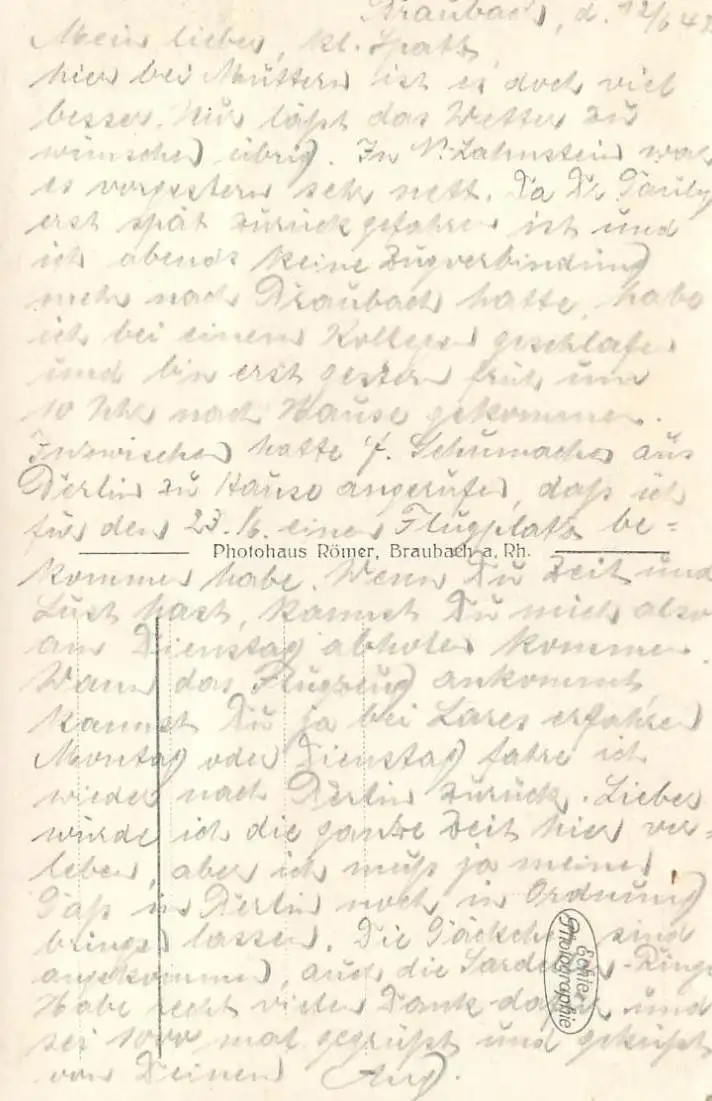 Braubach, d. 12/6 42
Mein lieber, kl. Spatz,
hier bei Muttern ist es doch viel
besser. Nur läßt das Wetter zu
wünschen übrig. In N.-Lahnstein war
es vorgestern sehr nett. Da Dr.
erst spät zurückgefahren ist und
ich abends keine Zugverbindung
mehr nach Braubach hatte, habe
ich bei einem Kollegen geschlafen
und bin erst gestern früh um
10 Uhr nach Hause gekommen.
Inzwischen hatte f. Schumacher aus
Berlin zu Hause angerufen, daß ich
für den 23./6. einen Flugplatz be=
Photohaus Römer, Braubach a. Rh.
kommen habe. Wenn Du Zeit und
Lust hast, kannst Du mich also
am Dienstag abholen kommen.
Wann das Flugzeug ankommt,
kannst Du ja bei Lares erfahren
Montag oder Dienstag fahre ich
wieder nach Berlin zurück. Lieber
würde ich die ganze Zeit hier ver=
leben, aber ich muß ja meinen
Paß in Berlin noch in Ordnung
bringen lassen. Die Päckchen sind
angekommen, auch die
Habe recht vielen Dank dafür und
sei 1000 mal gegrüßt und geküßt
von Deinem Aug.
Echte
Photographie